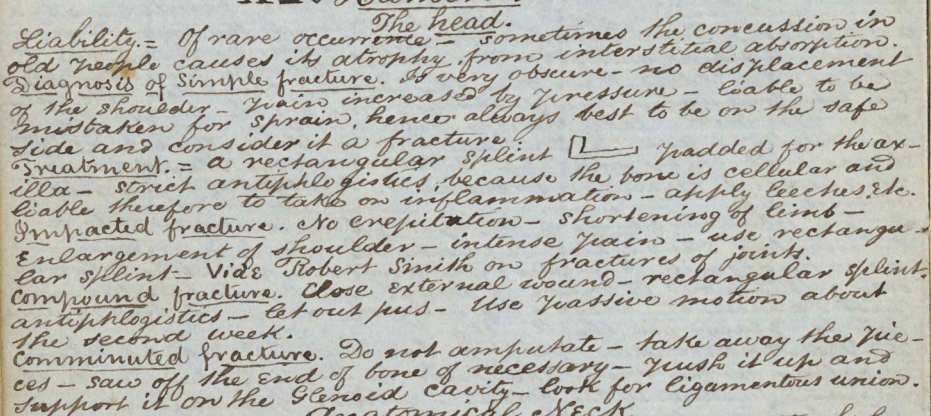 The head.
Liability. = Of rare occurrence - sometimes the concussion in
old people causes its atrophy from interstitial absorption.
Diagnosis of Simple fracture. Is very obscure - no displacement
of the shoulder - pain increased by pressure - liable to be
mistaken for sprain, hence always best to be on the safe
side and consider it a fracture
Treatment. = a rectangular splint padded for the ax-
illa - strict antiphlogistics, because the bone is cellular and
liable therefore to take on inflammation - apply leeches, etc.
Impacted fracture. No crepitation - shortening of limb -
Enlargement of shoulder - intense pain - use rectangu-
lar splint - Vide Robert Smith on fractures of joints.
Compound fracture. Close external wound - rectangular splint -
antiphlogistics - let out pus - Use passive motion about
the second week.
Comminuted fracture. Do not amputate - take away the pie-
ces - saw off the end of bone if necessary - push it up and
support it on the Glenoid cavity - look for ligamentous union.
Anatomical Neck